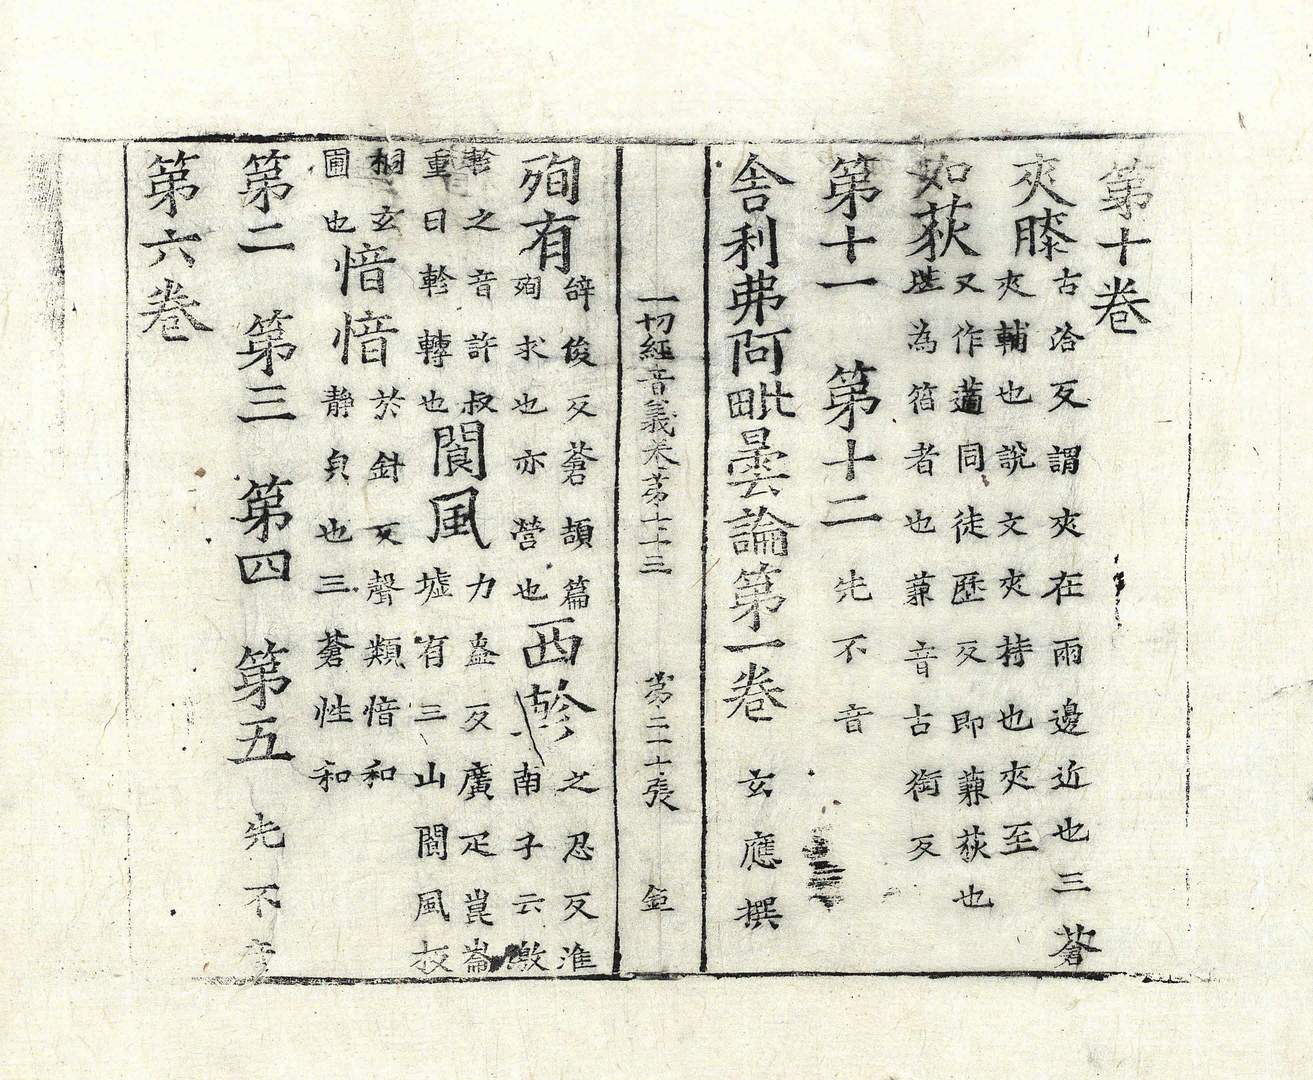 第十卷
夾膝古洽反謂夾在兩邊近也三蒼夾輔也說文夾持也夾至
如荻又作藡同徒歷反即蒹荻也堪為箔者也蒹音古銜反
第十一　第十二先不音
舍利弗阿毗曇論第一卷　玄應撰
一切經音義卷苐七十三　苐二十張　鉅
殉有辝俊反蒼頡篇殉求也亦營也西軫之忍反淮南子云激
軫之音許叔重曰軫轉也閬風力盎反廣疋崑崙墟有三山閬風板
桐玄圃也愔愔於針反聲類愔和靜皃也三蒼性和
第二　第三　第四　第五先不音
第六卷